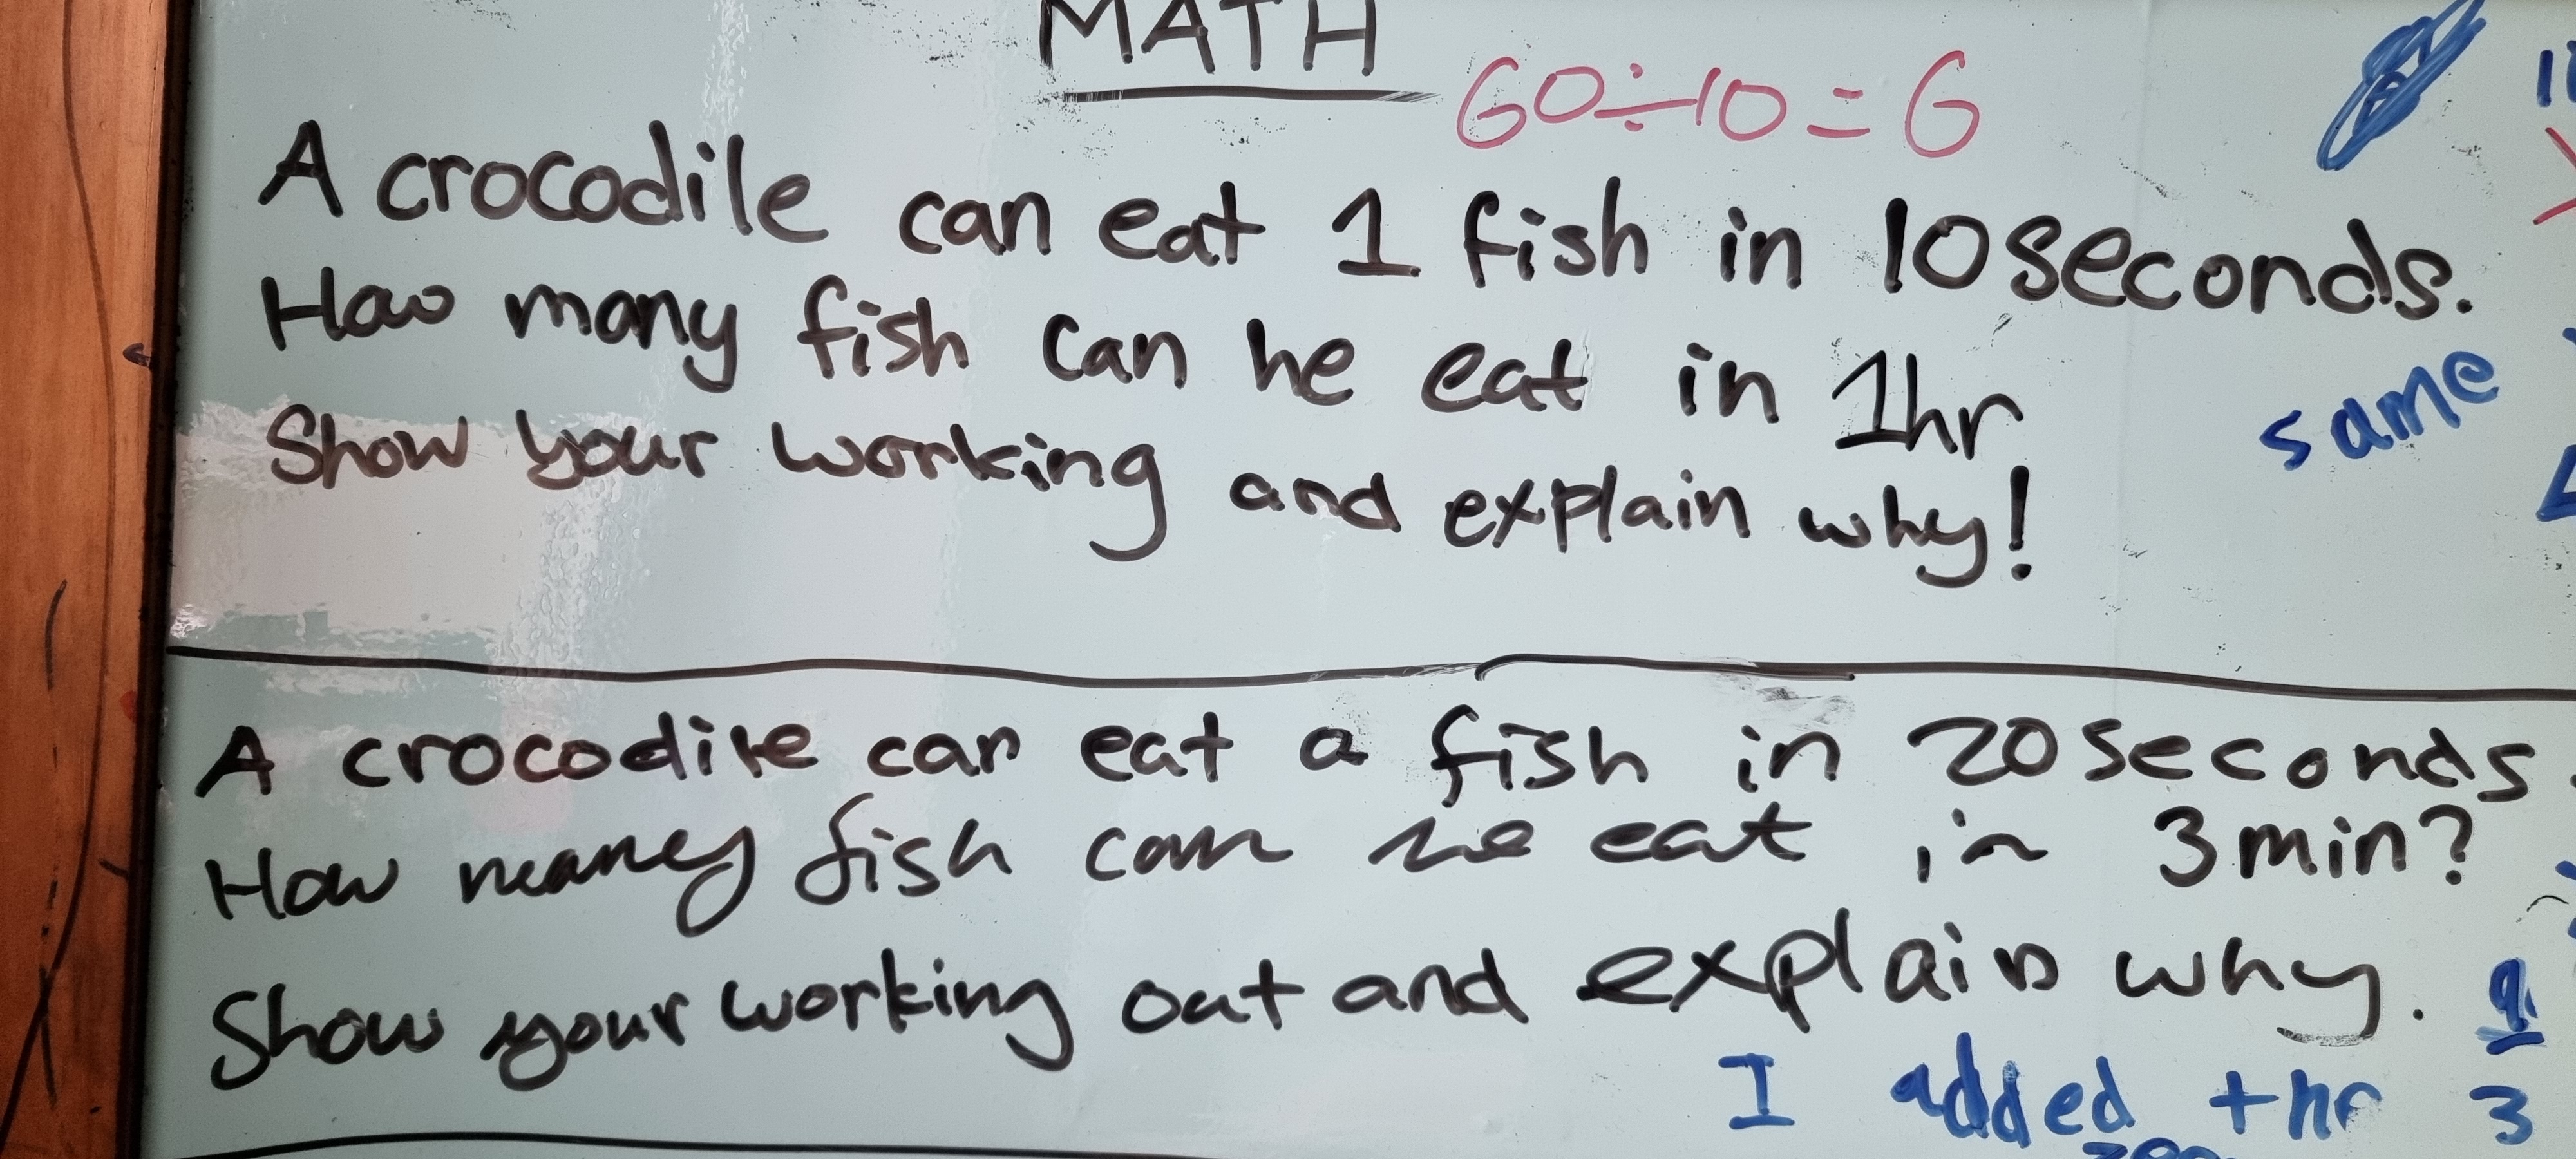 MATH
60÷10=6
A crocodile can eat 1 fish in 10 seconds.
How many fish can he eat in 1hr
Show your working and explain why!
same
A crocodile can eat a fish in 20 seconds.
How many fish can he eat in 3 min?
Show your working out and explain why.
I added
3